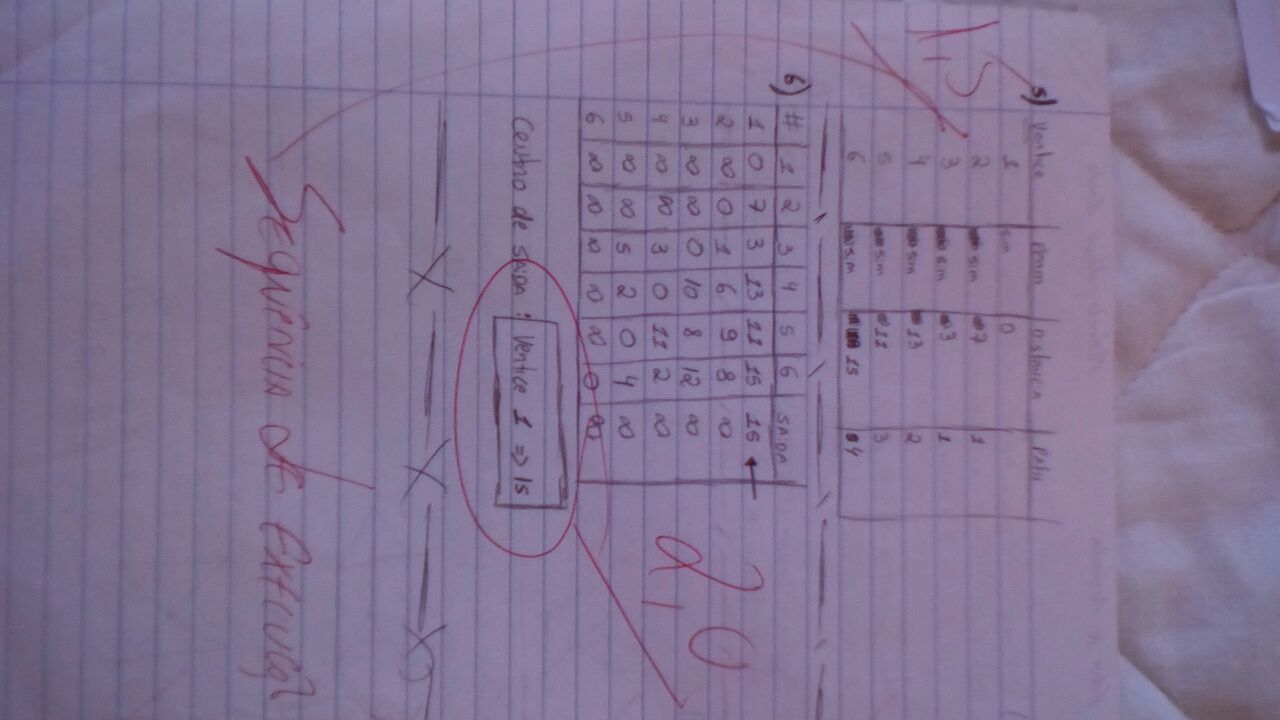 5) Vertice Perm Distancia Path
1 sim 0
2 sim 7 1
3 sim 3 1
4 sim 13 2
5 sim 11 3
6 sim 15 4
1,5
6) # 1 2 3 4 5 6 SAIDA
1 0 7 3 13 11 15 15 ←
2 ∞ 0 1 6 9 8 ∞
3 ∞ ∞ 0 10 8 12 ∞
4 ∞ ∞ 3 0 11 2 ∞
5 ∞ ∞ 5 2 0 4 ∞
6 ∞ ∞ ∞ ∞ ∞ 0 ∞
2,0
Centro de SAIDA : Vertice 1 => 15
SEQUÊNCIA DE